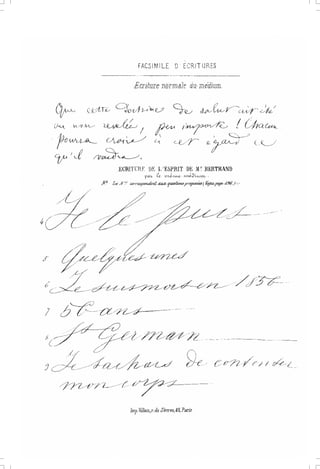 FACSIMILE D'ÉCRITURES
Écriture normale du médium.
Que cette Doctrine de salut ait été
ou non revelée, peu importe! Chacun
pourra croire à cet égard ce
qu'il voudra.
ECRITURE DE L'ESPRIT DE Mr BERTRAND
par le même médium.
Nª Les Nos correspondent aux questions proposées
4 Je le puis
5 Quelques unes
6 Je suis mort en 1856
7 56 ans
8 St Germain
9 Je tachais de contenter
mon corps
Paris